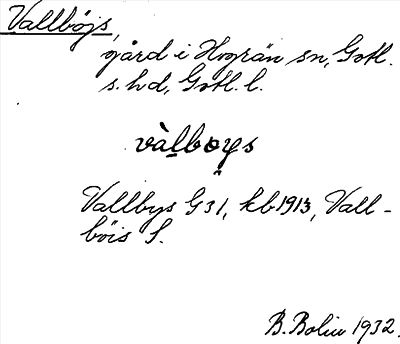 Vallböjs,
gård i Hogrän sn, Gotl.
s. hd, Gotl. l.
vàlboys
Vallbys G 31, kb 1913, Vall-
böis S.
B. Bolin 1932.